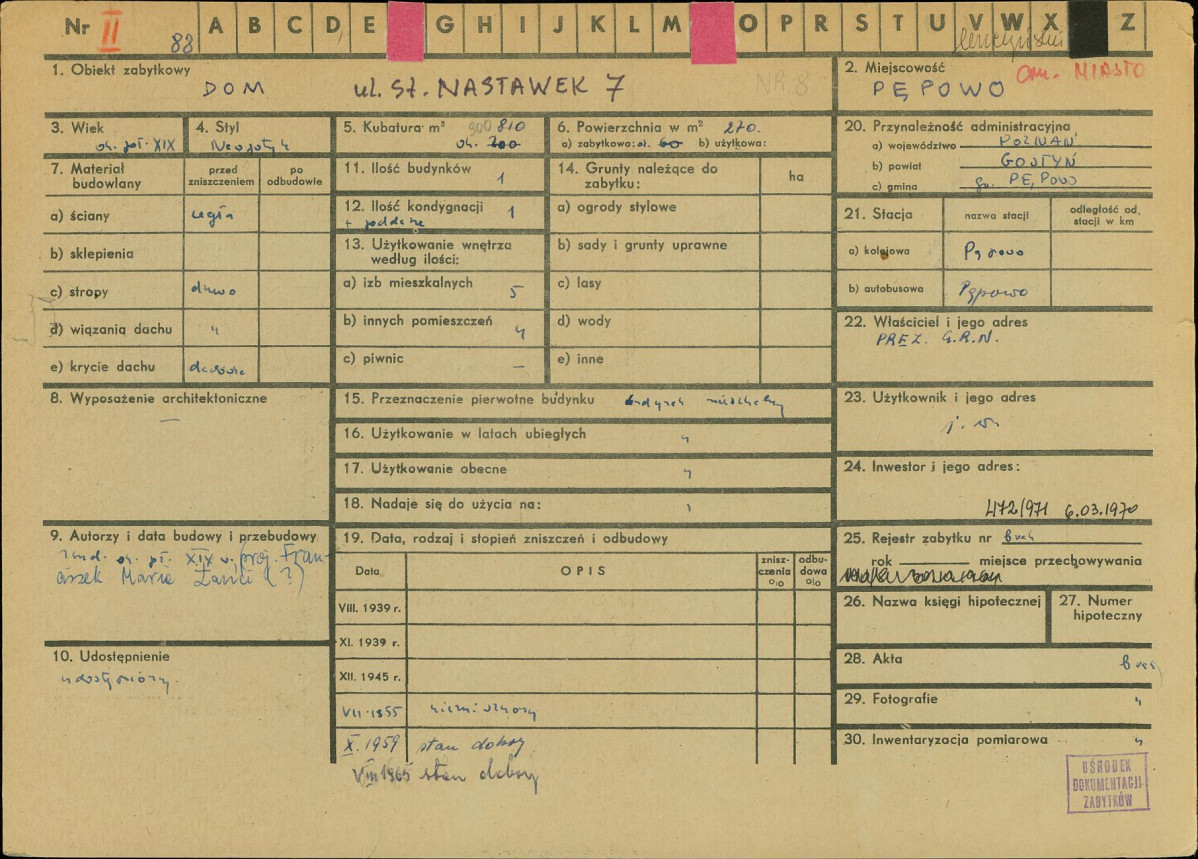 Nr II 83 A B C D E G H I J K L M O P R S T U V W X Z
1. Obiekt zabytkowy
DOM ul. St. NASTAWEK 7 NR.8
2. Miejscowość
om. MIASTO
PĘPOWO
3. Wiek
ok. poł. XIX
4. Styl
Neogotyk
5. Kubatura m³ 900 810
ok. 200
6. Powierzchnia w m² 270.
a) zabytkowa: ok. 60 b) użytkowa:
20. Przynależność administracyjna
a) województwo POZNAŃ
b) powiat GOSTYŃ
c) gmina PĘPOWO
7. Materiał budowlany
przed zniszczeniem
po odbudowie
a) ściany cegła
b) sklepienia
c) stropy drewno
d) wiązania dachu "
e) krycie dachu dachówka
11. Ilość budynków 1
12. Ilość kondygnacji 1
+ poddasze
13. Użytkowanie wnętrza
według ilości:
a) izb mieszkalnych 5
b) innych pomieszczeń 4
c) piwnic —
14. Grunty należące do
zabytku: ha
a) ogrody stylowe
b) sady i grunty uprawne
c) lasy
d) wody
e) inne
21. Stacja
nazwa stacji
odległość od
stacji w km
a) kolejowa Pępowo
b) autobusowa Pępowo
22. Właściciel i jego adres
PREZ. G.R.N.
8. Wyposażenie architektoniczne
—
15. Przeznaczenie pierwotne budynku budynek mieszkalny
16. Użytkowanie w latach ubiegłych "
17. Użytkowanie obecne "
18. Nadaje się do użycia na: "
23. Użytkownik i jego adres
j. w.
24. Inwestor i jego adres:
472/971 6.03.1970
9. Autorzy i data budowy i przebudowy
zbud. ok. poł. XIX w. (proj. Fran-
ciszek Maria Lanci (?)
19. Data, rodzaj i stopień zniszczeń i odbudowy
Data
OPIS
znisz-
czenia
%
odbu-
dowa
%
VIII. 1939 r.
XI. 1939 r.
XII. 1945 r.
VII. 1955
X. 1959 stan dobry
VIII 1965 stan dobry
25. Rejestr zabytku nr brak
rok miejsce przechowywania
26. Nazwa księgi hipotecznej
27. Numer
hipoteczny
10. Udostępnienie
udostępniony.
28. Akta brak
29. Fotografie "
30. Inwentaryzacja pomiarowa "
OŚRODEK
DOKUMENTACJI
ZABYTKÓW